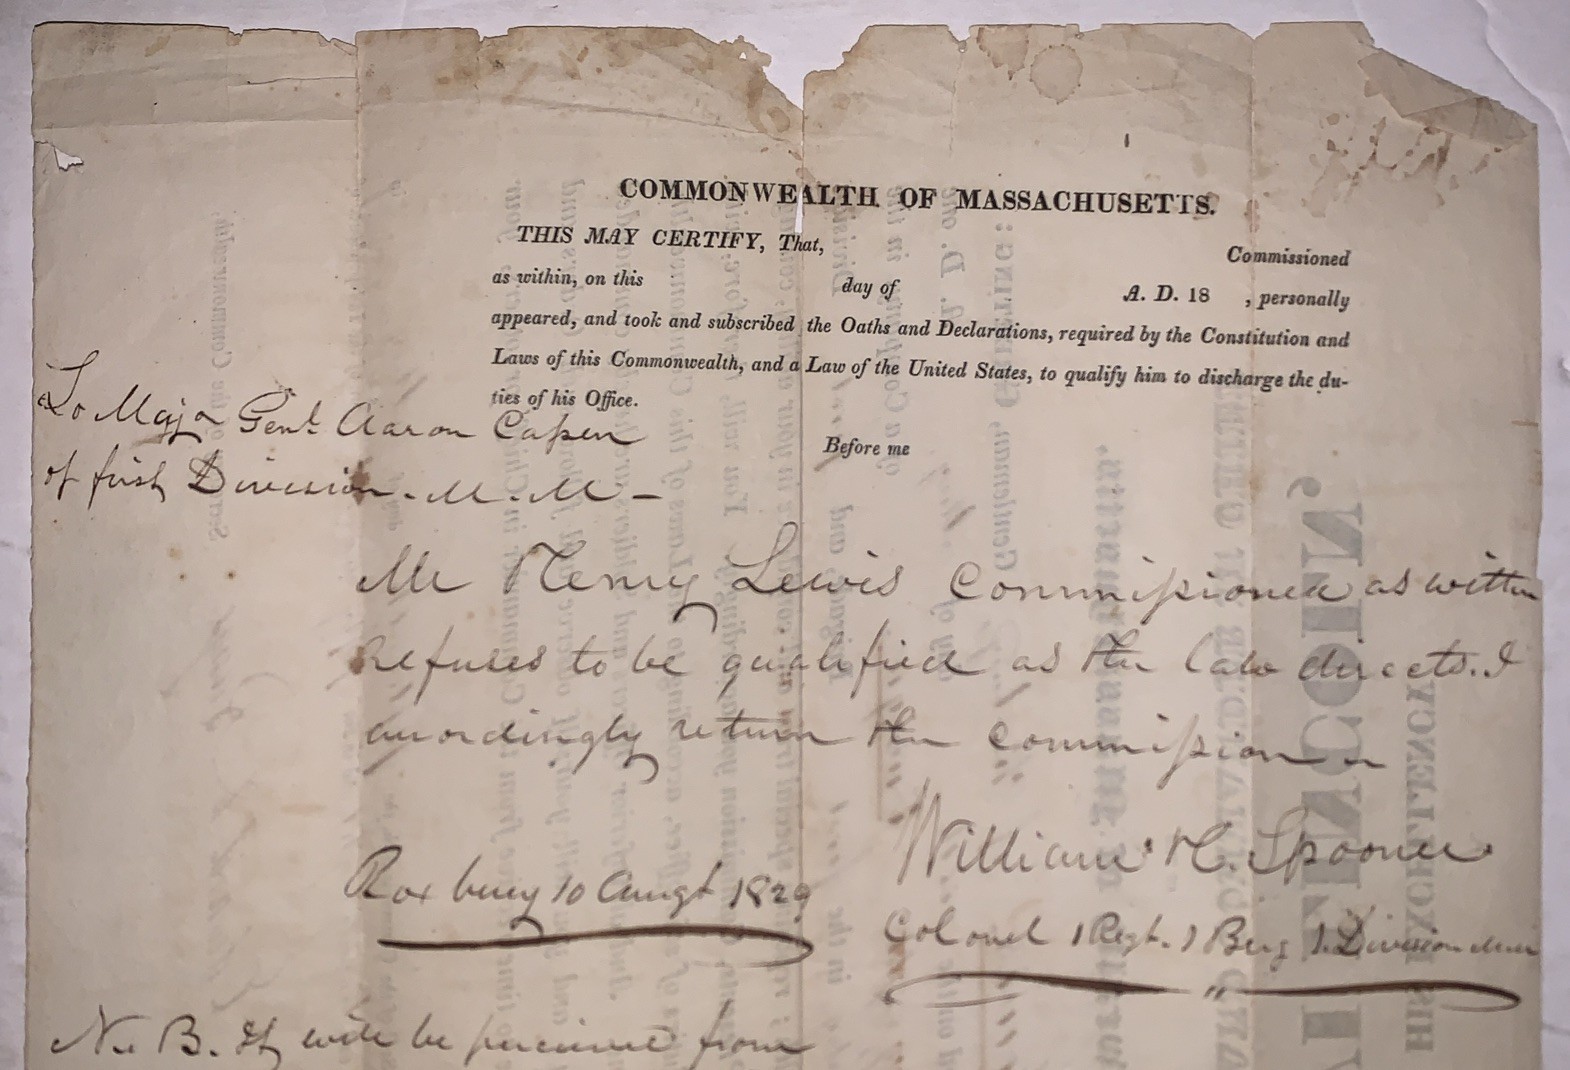 COMMONWEALTH OF MASSACHUSETTS.
THIS MAY CERTIFY, That,
Commissioned
as within, on this day of A. D. 18 , personally
appeared, and took and subscribed the Oaths and Declarations, required by the Constitution and
Laws of this Commonwealth, and a Law of the United States, to qualify him to discharge the du-
ties of his Office.
Before me
To Majr Genl. Aaron Capen
of first Division. M. M -
Mr Henry Lewis Commissioned as within
refuses to be qualified as the law directs. I
accordingly return the Commission
William H. Spooner
Roxbury 10 Augt 1829
Colonel 1 Regt. 1 Brig 1. Division
N. B. It will be perceived from